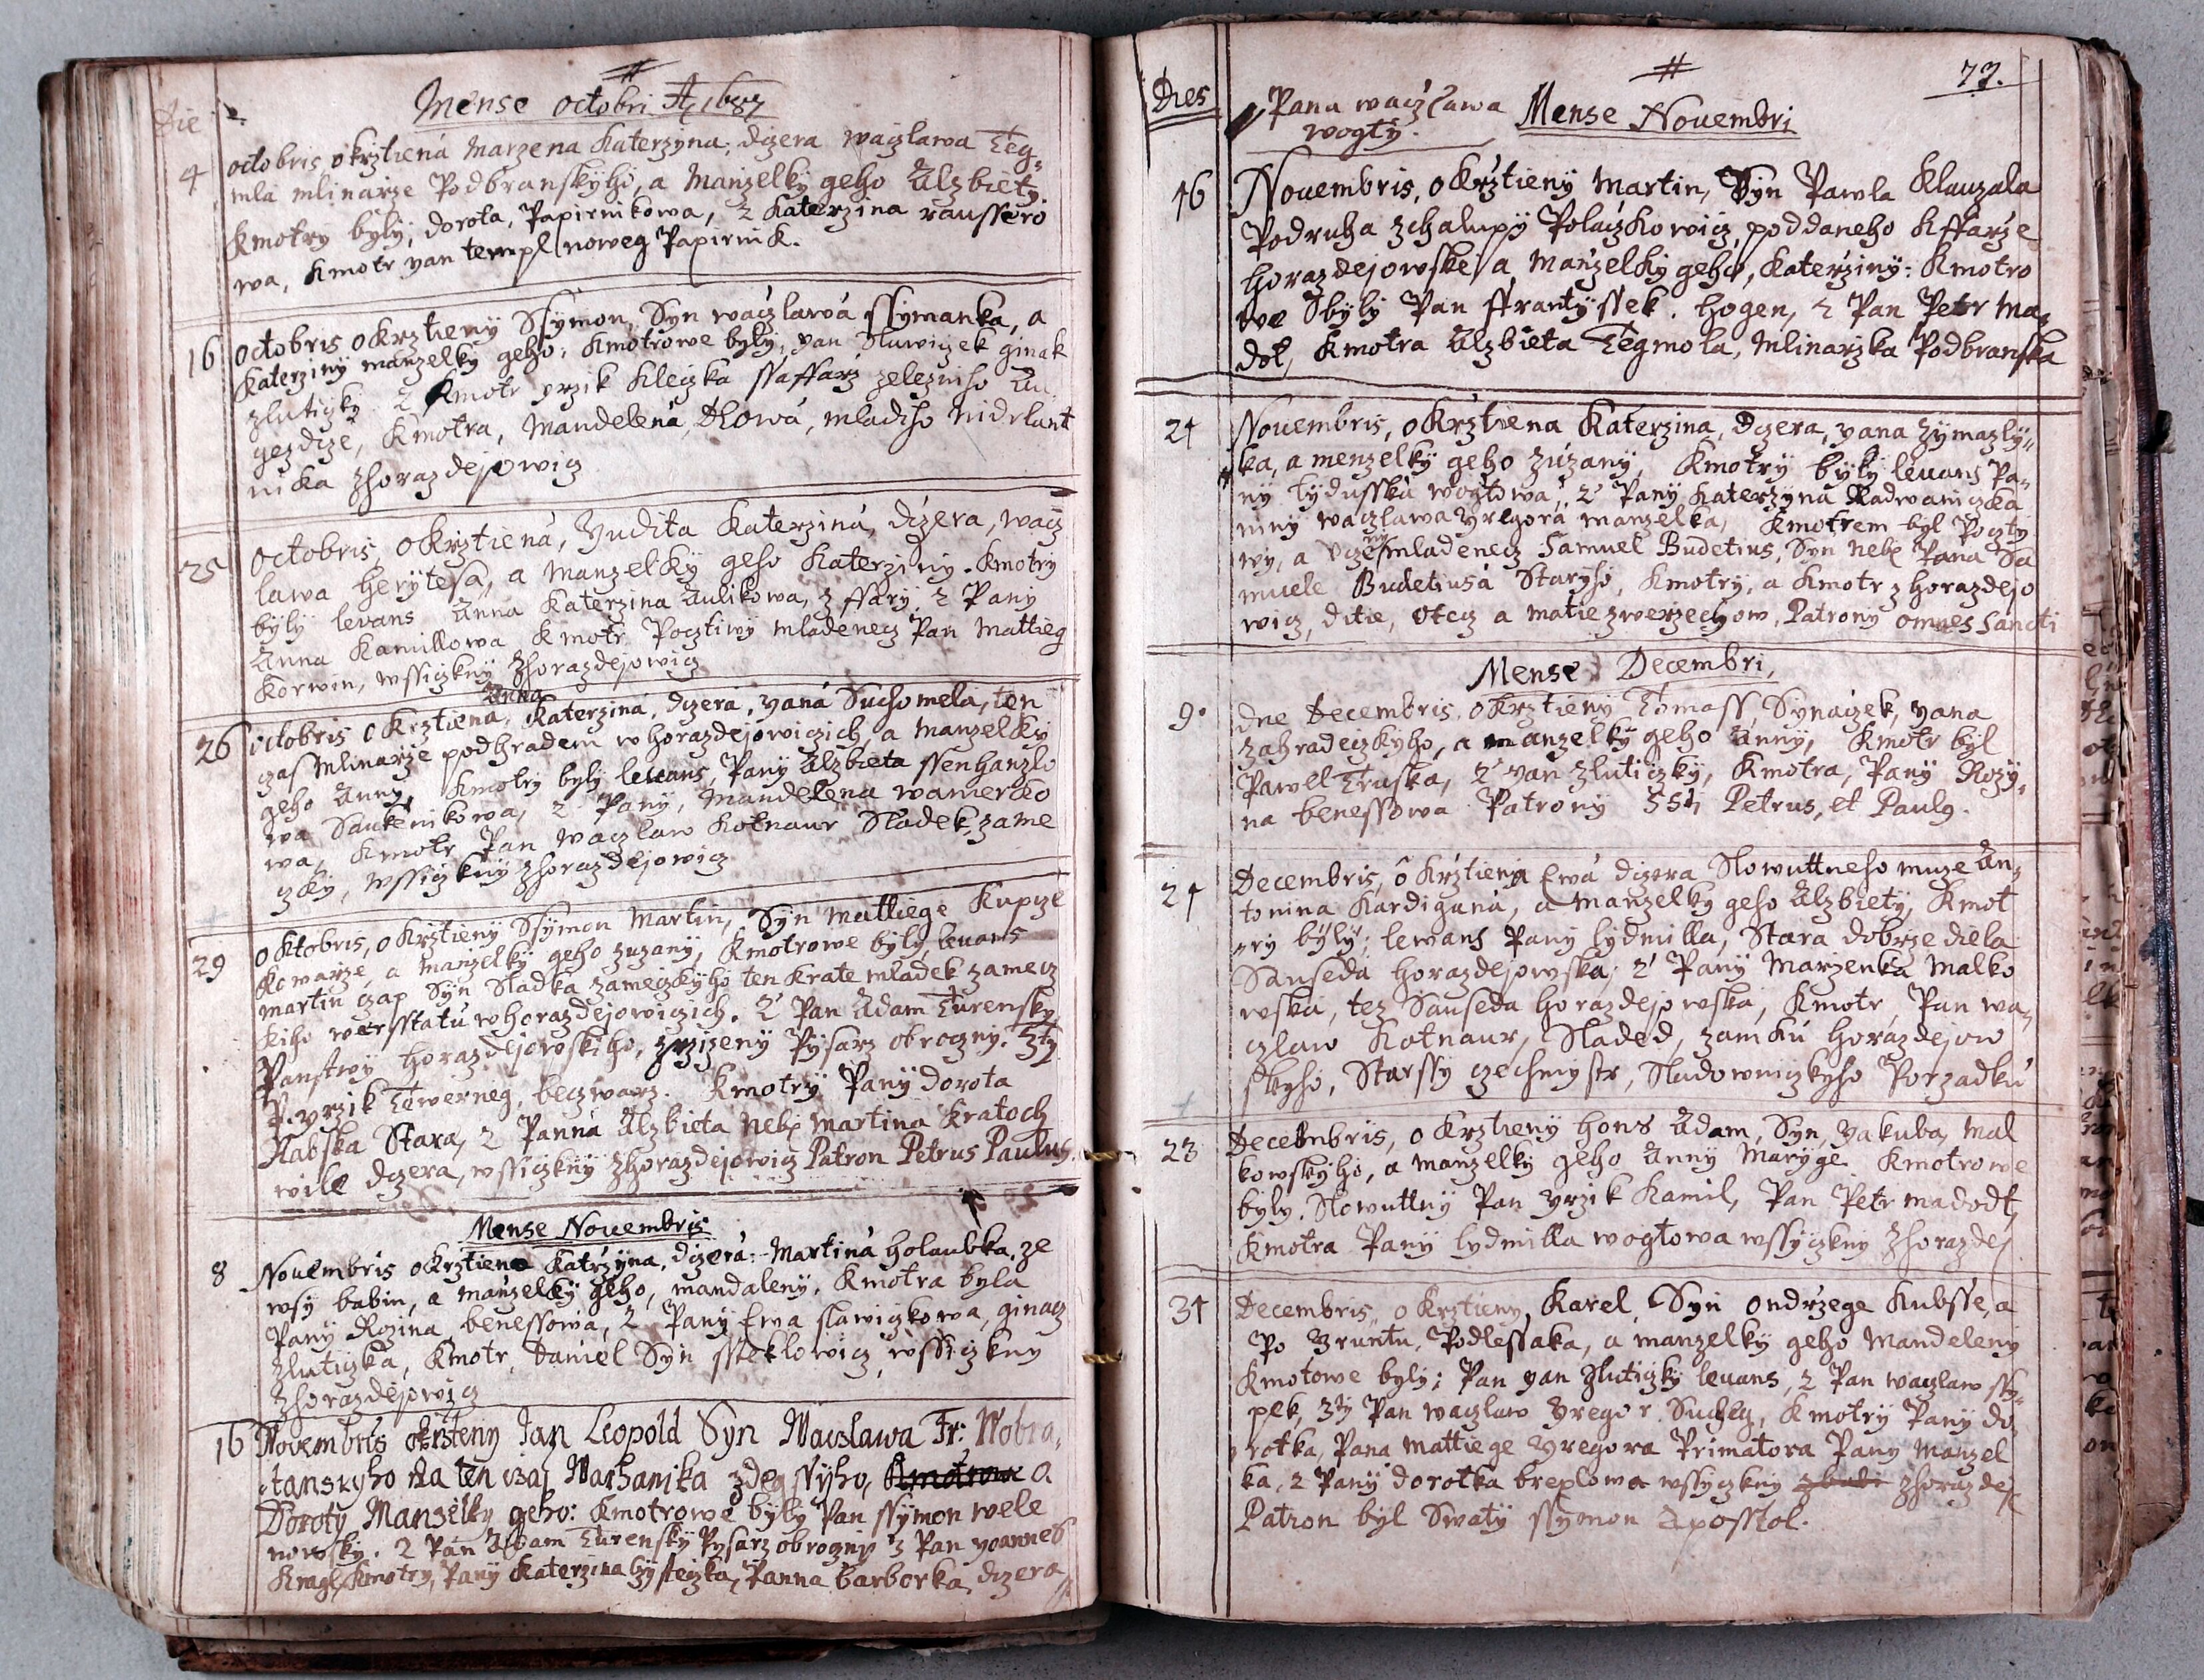 Die
Mense octobri A 1687
4 octobris okrztiena Marzena Katerzyna, dczera waczlawa Teg=
mla mlinarze Podbranskyho, a Manzelky geho Alzbiety.
Kmotry byly, dorota, Papirnikowa, 2 Katerzina raussero
wa, Kmotr yan templ noweg Papirnik.
16 octobris okrztieny Ssymon, Syn waczlawa ssymanka, a
Katerziny manzelky geho, Kmotrowe byly, yan Slawiczek ginak
zluticzky 2 Kmotr yrzik Kleczka ssaffarz zelezniho
gezdize, Kmotra, Mandelena, mladiho nidrlant
nika zhorazdejowicz
25 octobris, okrztiena, Yudita Katerzina, dczera, wacz
lawa herytesa, a manzelky geho Katerziny. Kmotry
byly levans Anna Katerzina Aulikowa, z ffary, 2 Pany
Anna Kamillowa Kmotr Pocztiwy mladenecz Pan Mattieg
Korwin, wssiczkny zhorazdejowicz
Anna
26 octobris okrztiena, Katerzina, dczera, yana Suchomela, ten
czas Mlinarze podhradem w horazdejowiczich a manzelky
geho Anny, Kmotry byly levans, Pany Alzbieta ssenhanzlo
wa Saukenikowa, 2 Pany, Mandelena wanierko
wa, Kmotr Pan waczlaw Kotnaur Sladek, zame
czky, wssiczkny zhorazdejowicz
29 oktobris, okrztieny Ssymon Martin, Syn mattiege Kupcze
Kowarze, a manzelky geho zuzany, Kmotrowe byly, levans
martin czap Syn Sladka zameczkyho ten krate mladek zamecz
kiho werstatu w horazdejowiczich. 2 Pan Adam Turensky
Panstwy horazdejowskiho, zrzizeny Pysarz obroczny. 3ty
P. yrzik Tewerneg, beczwarz. Kmotry Pany dorota
Slabska Stara, 2 Panna Alzbieta Neb martina Kratoch
wile dczera, wssiczkny zhorazdejowicz Patron Petrus Paulus.
Mense Nouembris
8 Nouembris okrztiena Katrzyna, dczera: Martina holaubka, ze
wsy babin, a manzelky geho, mandaleny, Kmotra byla
Pany Rozina benessowa, 2 Pany Ewa slawiczkowa, ginacz
zluticzka, Kmotr, Daniel Syn ssteklowicz, wssiczkny
zhorazdejowicz
16 Novembris okrzteny Jan Leopold Syn Waczlawa Fr: Wobra,
tanskyho na ten czas Warhanika zdegssyho, a
Doroty Manzelky geho: Kmotrowe byly Pan ssymon wele
nowsky. 2 Pan Adam Turensky Pysarz obroczny 3 Pan yoannes
Kragl, Kmotry, Pany Katerzina, Panna barborka, dczera
Dies
77.
Pana waczlawa
wogty.
Mense Nouembri
16 Nouembris, okrztieny Martin, Syn Pawla Klauzala
Podruha z chalupy Polaczkowicz, poddaneho kffarze
horazdejowske, a manzelky geho, Katerziny: Kmotro
we byly Pan ffrantyssek. hogen, 2 Pan Petr Ma,
dol, Kmotra Alzbieta Tegmola, Mlinarzka Podbranska
21 Nouembris, okrztiena Katerzina, Dczera, yana zymazly=
ka, a menzelky geho zuzany, Kmotry byly levans Pa=
ny Lydusska wogtowa, 2 Pany Katerzyna Radwaniczka
niny waczlawa Yregora manzelka, Kmotrem byl Poczty
wy, a vczeny mladenecz Samuel Budetius, Syn neb Pana Sa
muele Budetiusa Staryho, Kmotry, a Kmotr z horazdejo
wicz, ditie, otecz a matie zwerzechow, Patrony omnes Sancti
Mense Decembri,
9. dne Decembris okrztieny Tomass Synaczek, yana
zahradeczkyho, a manzelky geho Anny, Kmotr byl
Pawel Truska, 2 yan zluticzky, Kmotra, Pany Rozy,
na benessowa Patrony SSti Petrus, et Paulg.
21 Decembris, okrztiena Ewa dczera Slowuttneho muze An=
tonina Kardigana, a manzelky geho Alzbiety, Kmot
=ry byly; lewans Pany lydmilla, Stara dobrze diela
Sauseda horazdejowska, 2 Pany Marzenka Malko
wska, tez Sauseda horazdejowska, Kmotr, Pan wa=
czlaw Kotnaur, Sladed, zamku horazdejow
skyho, Starssy czechmystr, Sladowniczkyho Porzadku
23 Decembris, okrztieny hons Adam, Syn, yakuba, Mal
kowskyho, a manzelky geho Anny Maryge. Kmotrowe
byly. Slowuttny Pan yrzik Kamil, Pan Petr madodt,
Kmotra Pany lydmilla wogtowa wssyczkny zhorazdej
31 Decembris, okrztieny, Karel, Syn Ondrzege Kubsse, a
Po gruntu, Podlessaka, a manzelky geho Mandeleny
Kmotowe byly; Pan yan zluticzky levans, 2 Pan waczlaw sky=
pek, 3ty Pan waczlaw Yregor Sucheg, Kmotry Pany do,
rotka, Pana Mattiege Yregora Primatora Pany Manzel
ka, 2 Pany dorotka breplowa wssyczkny zhorazdej
Patron byl Swaty ssymon Aposstol.